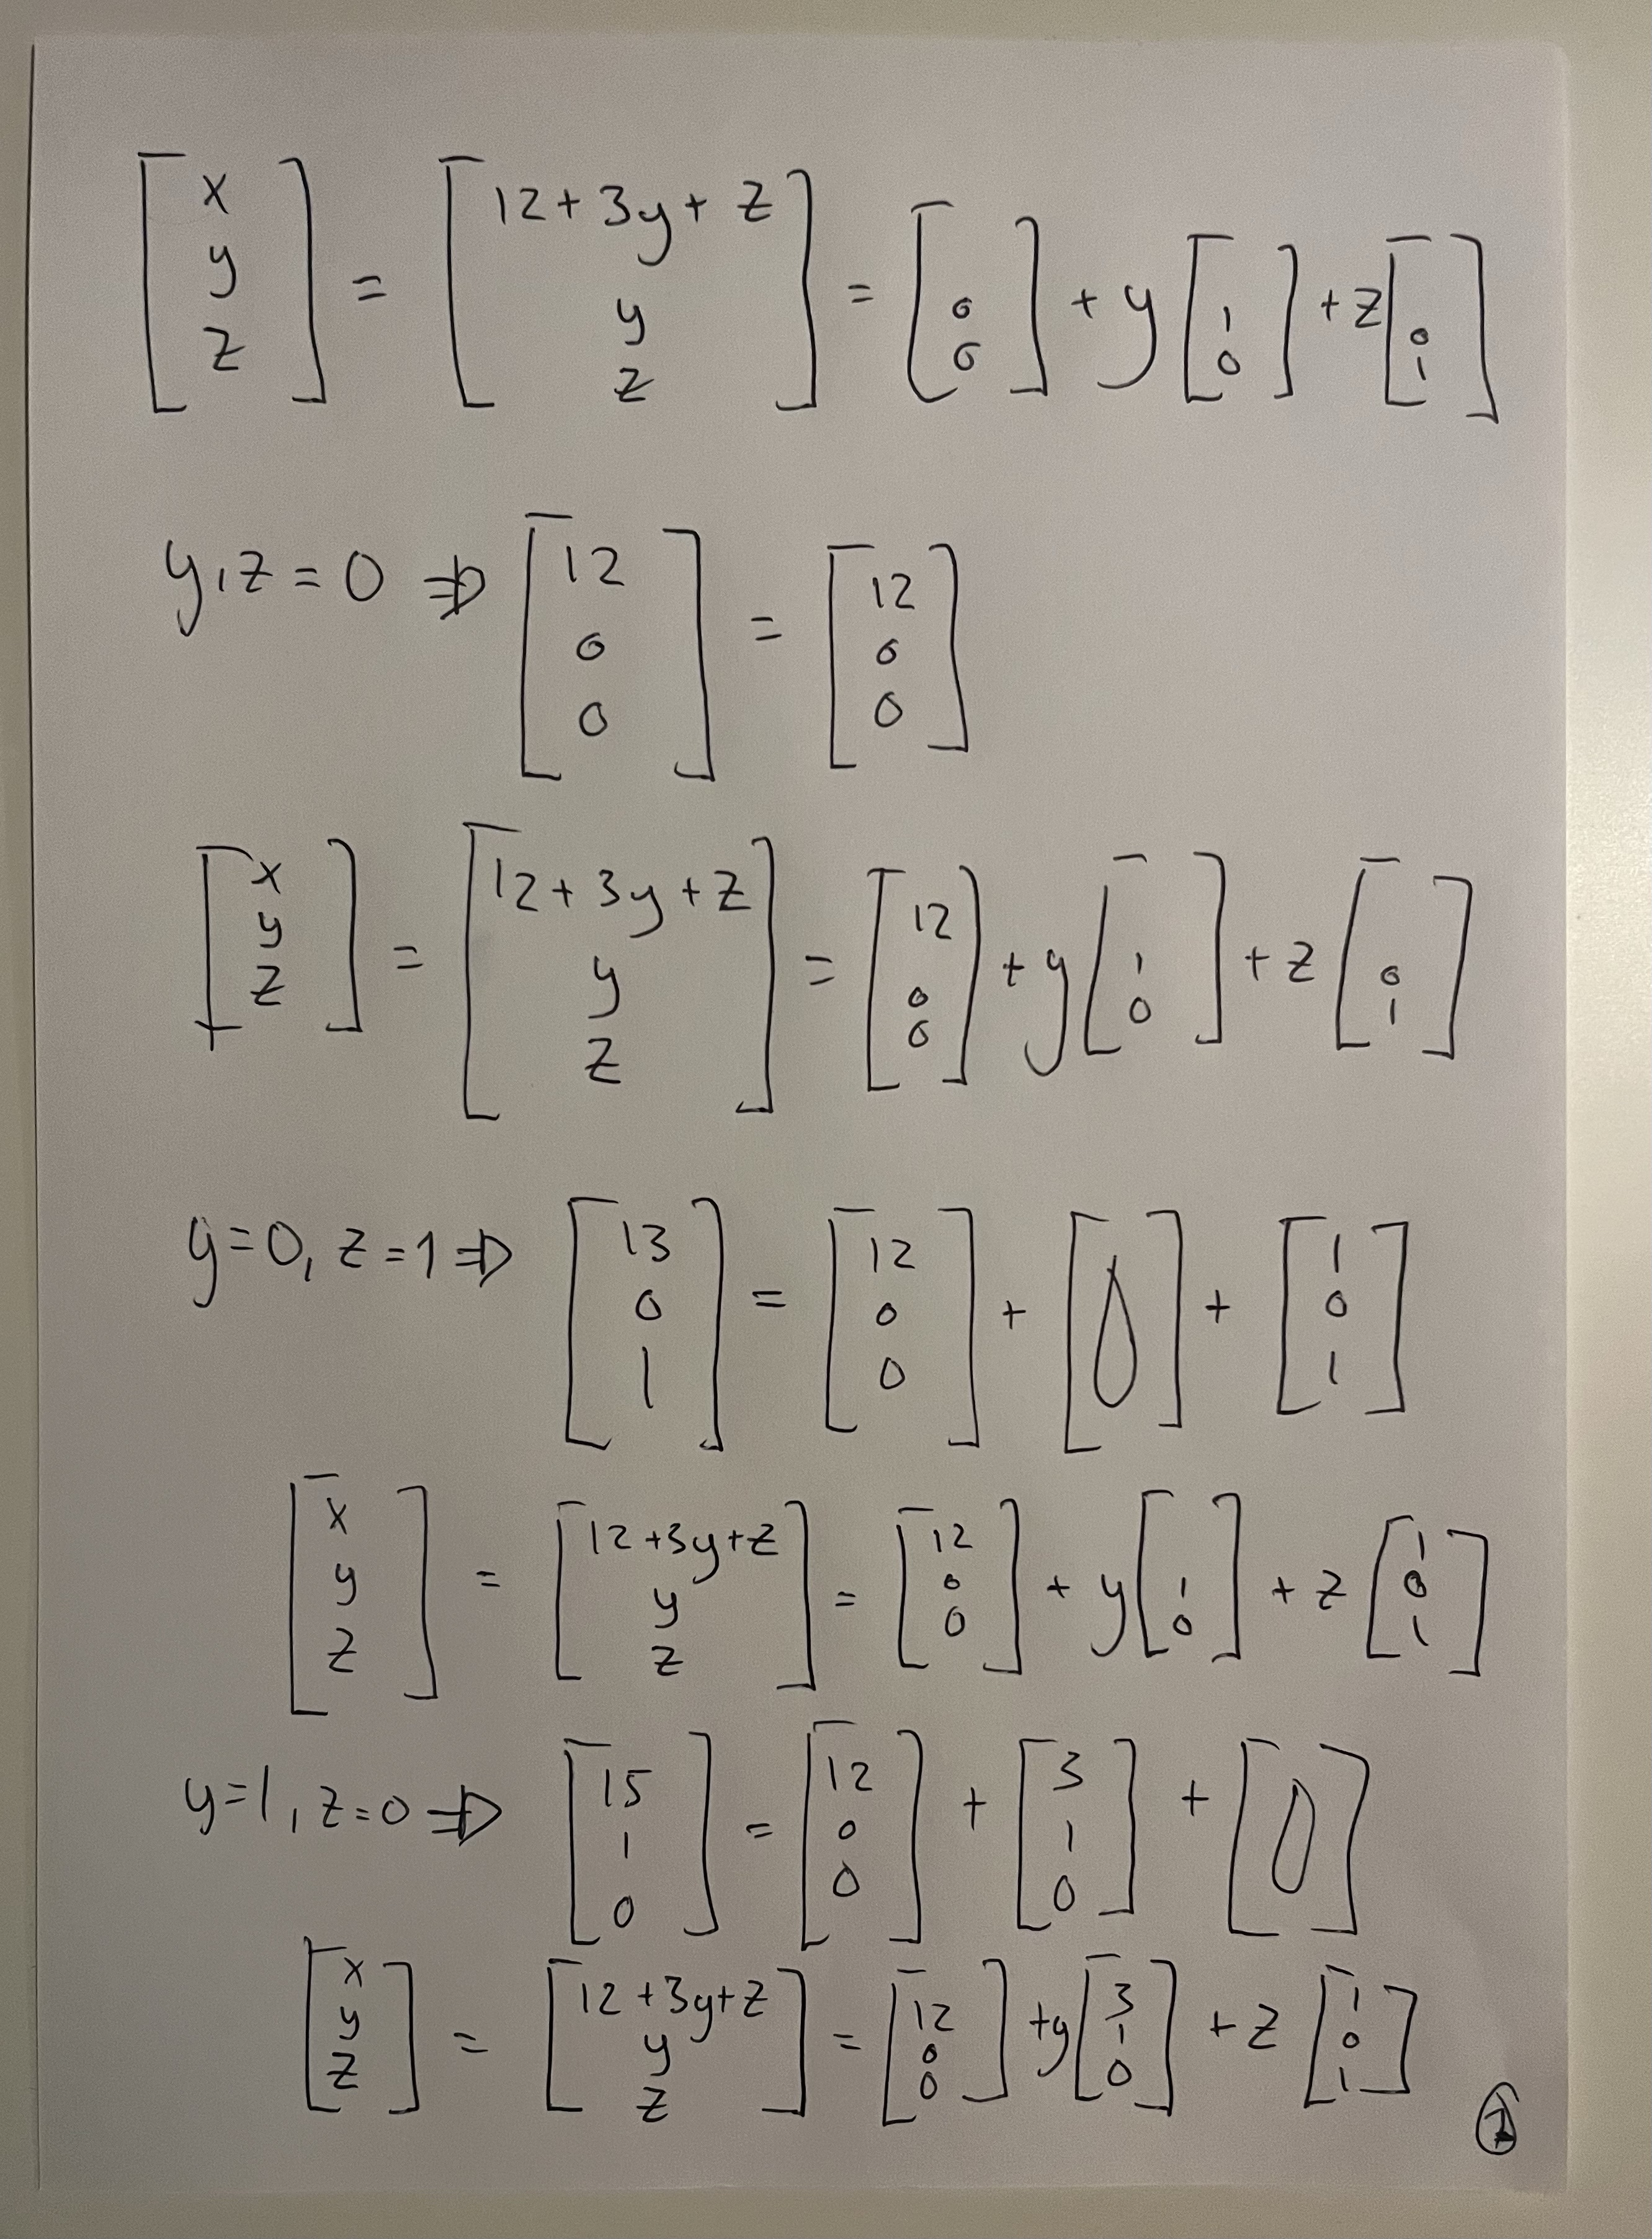 [x y z] = [12+3y+z y z] = [0 0] + y[1 0] + z[0 1]
y, z = 0 ⇒ [12 0 0] = [12 0 0]
[x y z] = [12+3y+z y z] = [12 0 0] + y[1 0] + z[0 1]
y=0, z=1 ⇒ [13 0 1] = [12 0 0] + [0] + [1 0 1]
[x y z] = [12+3y+z y z] = [12 0 0] + y[1 0] + z[1 0 1]
y=1, z=0 ⇒ [15 1 0] = [12 0 0] + [3 1 0] + [0]
[x y z] = [12+3y+z y z] = [12 0 0] + y[3 1 0] + z[1 0 1]